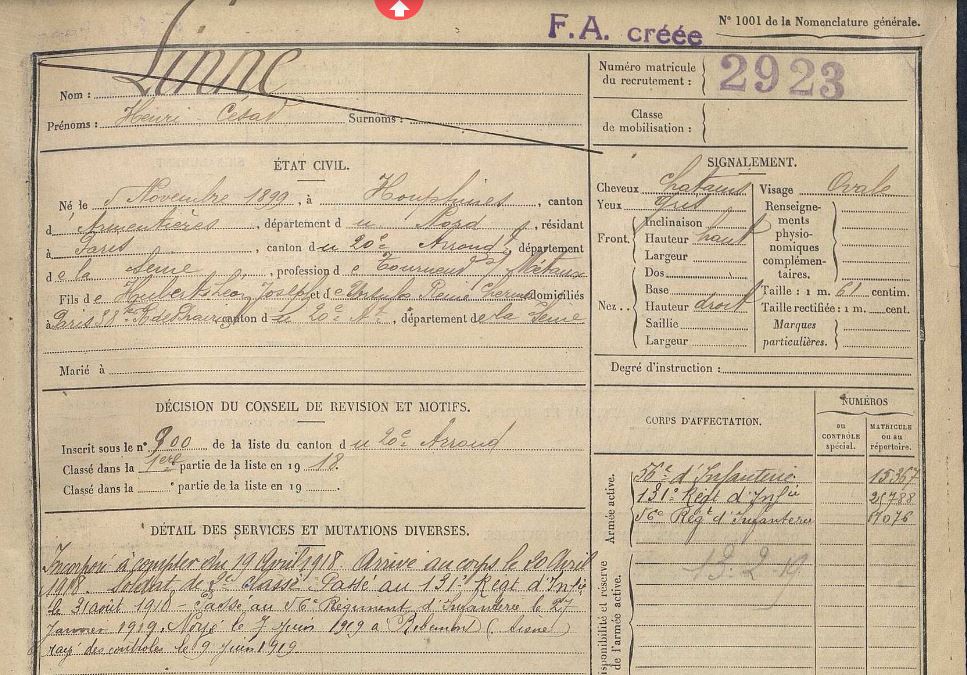 F.A. créée
N° 1001 de la Nomenclature générale.
Linne
Nom :
Prénoms : Henri César Surnoms :
Numéro matricule du recrutement : 2923
Classe de mobilisation :
ÉTAT CIVIL.
Né le Novembre 1899, à Houplines, canton
d'Armentières, département du Nord, résidant
à Paris, canton du 20e Arrond, département
de la Seine, profession de Tourneur s/ Métaux
Fils de Hubert Léon Joseph et de domiciliés
à Paris canton d 20e, département de la Seine
Marié à
SIGNALEMENT.
Cheveux chatains Visage Ovale
Yeux gris
Front. Inclinaison
Hauteur haut
Largeur
Nez. Dos
Base
Hauteur droit
Saillie
Largeur
Renseignements physionomiques complémentaires.
Taille : 1 m. 61 centim.
Taille rectifiée : 1 m. cent.
Marques particulières.
Degré d'instruction :
DÉCISION DU CONSEIL DE REVISION ET MOTIFS.
Inscrit sous le n° 900 de la liste du canton du 20e Arrond
Classé dans la 1ere partie de la liste en 1918.
Classé dans la partie de la liste en 19
CORPS D'AFFECTATION.
NUMÉROS
au CONTRÔLE spécial.
MATRICULE ou au répertoire.
Armée active.
d'Infanterie 15367
131e Regt d'Infie
Regt d'Infanterie
13.2.19
Disponibilité et réserve de l'armée active.
DÉTAIL DES SERVICES ET MUTATIONS DIVERSES.
Incorporé à compter du 19 Avril 1918. Arrivé au corps le 20 Avril
1918. Soldat de 2e classe. Passé au 131e Regt d'Infie
le 31 août 1918 - Passé au Régiment d'Infanterie le 27
Janvier 1919. Noyé le 7 juin 1919 à Ribemont (Aisne)
rayé des contrôles le 9 juin 1919.